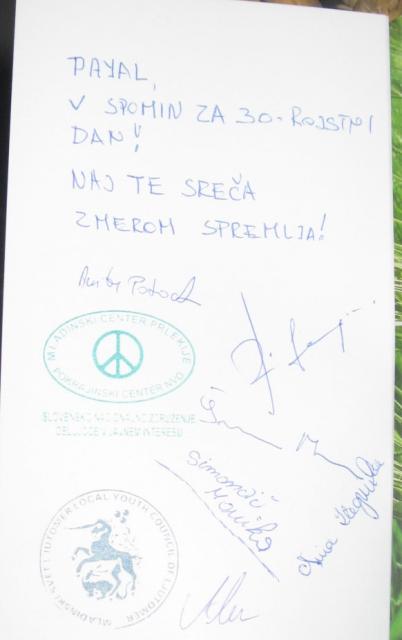 PAYAL,
V SPOMIN ZA 30. ROJSTNI
DAN!
NAJ TE SREČA
ZMEROM SPREMLJA!
MLADINSKI CENTER PRLEKIJE
POKRAJINSKI CENTER NVO
SLOVENSKO NACIONALNO ZDRUŽENJE
DELUJOČE V JAVNEM INTERESU
Simonič
Monika
MLADINSKI SVET LJUTOMER LOCAL YOUTH COUNCIL OF LJUTOMER